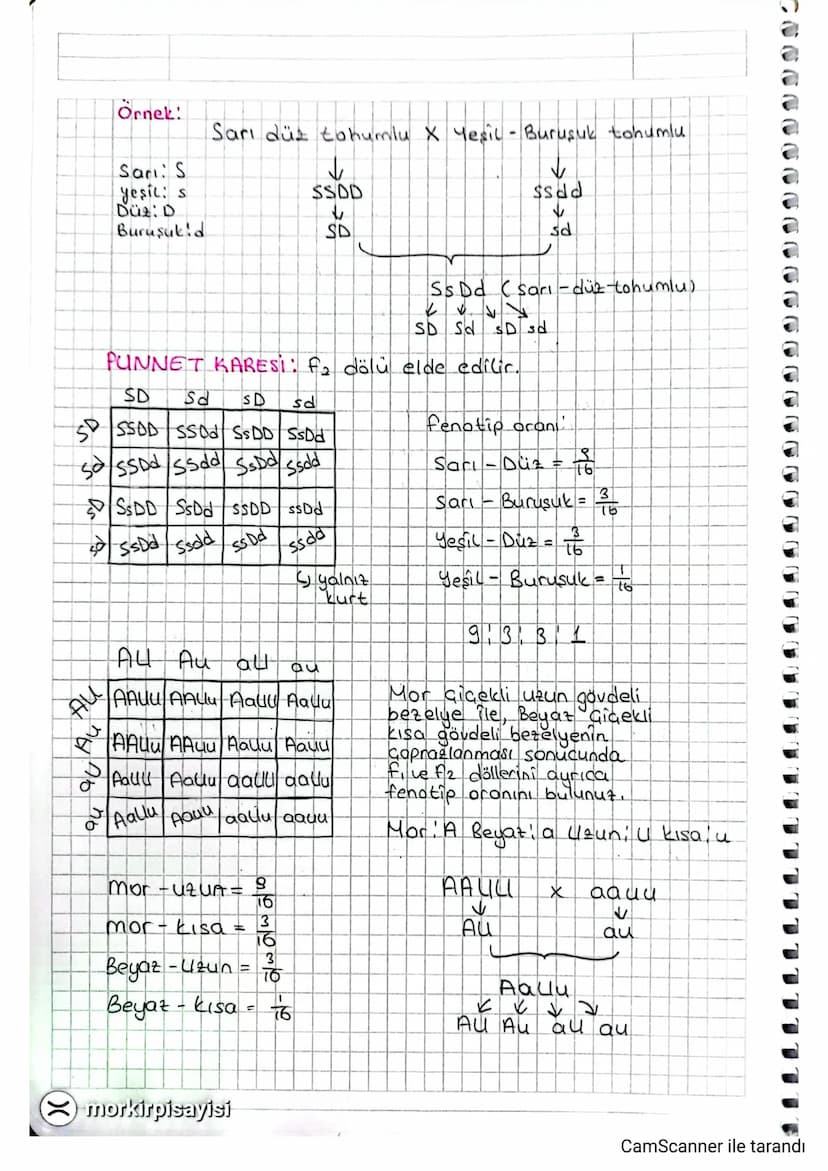 Örnek:
Sarı düz tohumlu X Yeşil - Buruşuk tohumlu
Sarı: S
yeşil: s
Düz: D
Buruşuk: d
SSDD
ssdd
SD
sd
SsDd (sarı-düz-tohumlu)
SD Sd sD sd
PUNNET KARESİ: F2 dölü elde edilir.
SD Sd sD sd
SD SSDD SSDd SsDD SsDd
Sd SSDd SSdd SsDd Ssdd
sD SsDD SsDd ssDD ssDd
sd SsDd Ssdd ssDd ssdd
yalnız
kurt
Fenotip oranı:
Sarı - Düz = 9/16
Sarı - Buruşuk = 3/16
Yeşil - Düz = 3/16
Yeşil - Buruşuk = 1/16
9:3:3:1
AU Au aU au
AU AAUU AAUu AaUU AaUu
Au AAUu AAuu AaUu Aauu
aU AaUU AaUu aaUU aaUu
au AaUu Aauu aaUu aauu
Mor çiçekli uzun gövdeli
bezelye ile, Beyaz çiçekli
kısa gövdeli bezelyenin
çaprazlanması sonucunda
F1 ve F2 döllerini ayrıca
fenotip oranını bulunuz.
Mor: A Beyaz: a Uzun: U kısa: u
mor - uzun = 9/16
mor - kısa = 3/16
Beyaz - Uzun = 3/16
Beyaz - kısa = 1/16
AAUU x aauu
AU
au
AaUu
AU Au aU au
morkirpisayisi
CamScanner ile tarandı